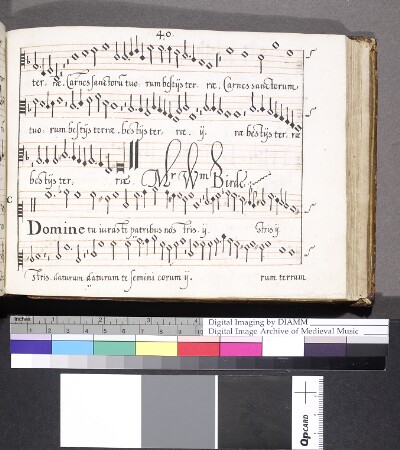 40
ter, ræ. Carnes sanctorũ tuo rum bestijs ter ræ. Carnes sanctorum
tuo rum bestijs terræ. bestijs ter, ræ ij. ræ bestijs ter, ræ
bestijs ter, ræ. Mr Wm Birde.
C
Domine tu iurasti patribus nos tris. ij. stris ij
stris. daturum daturum te semini eorum ij. rum terram
inches 1 2 3 4
Digital Imaging by DIAMM
Digital Image Archive of Medieval Music
QPCARD